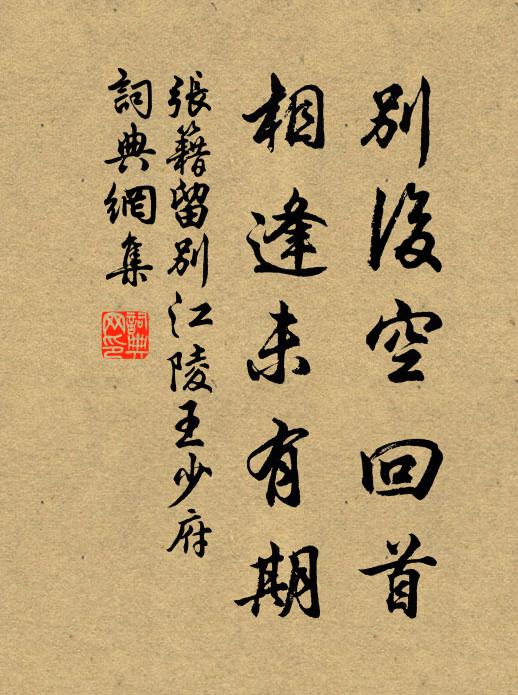 別後空回首
相逢未有期
張籍留別江陵王少府
詞典網集
詞典網印